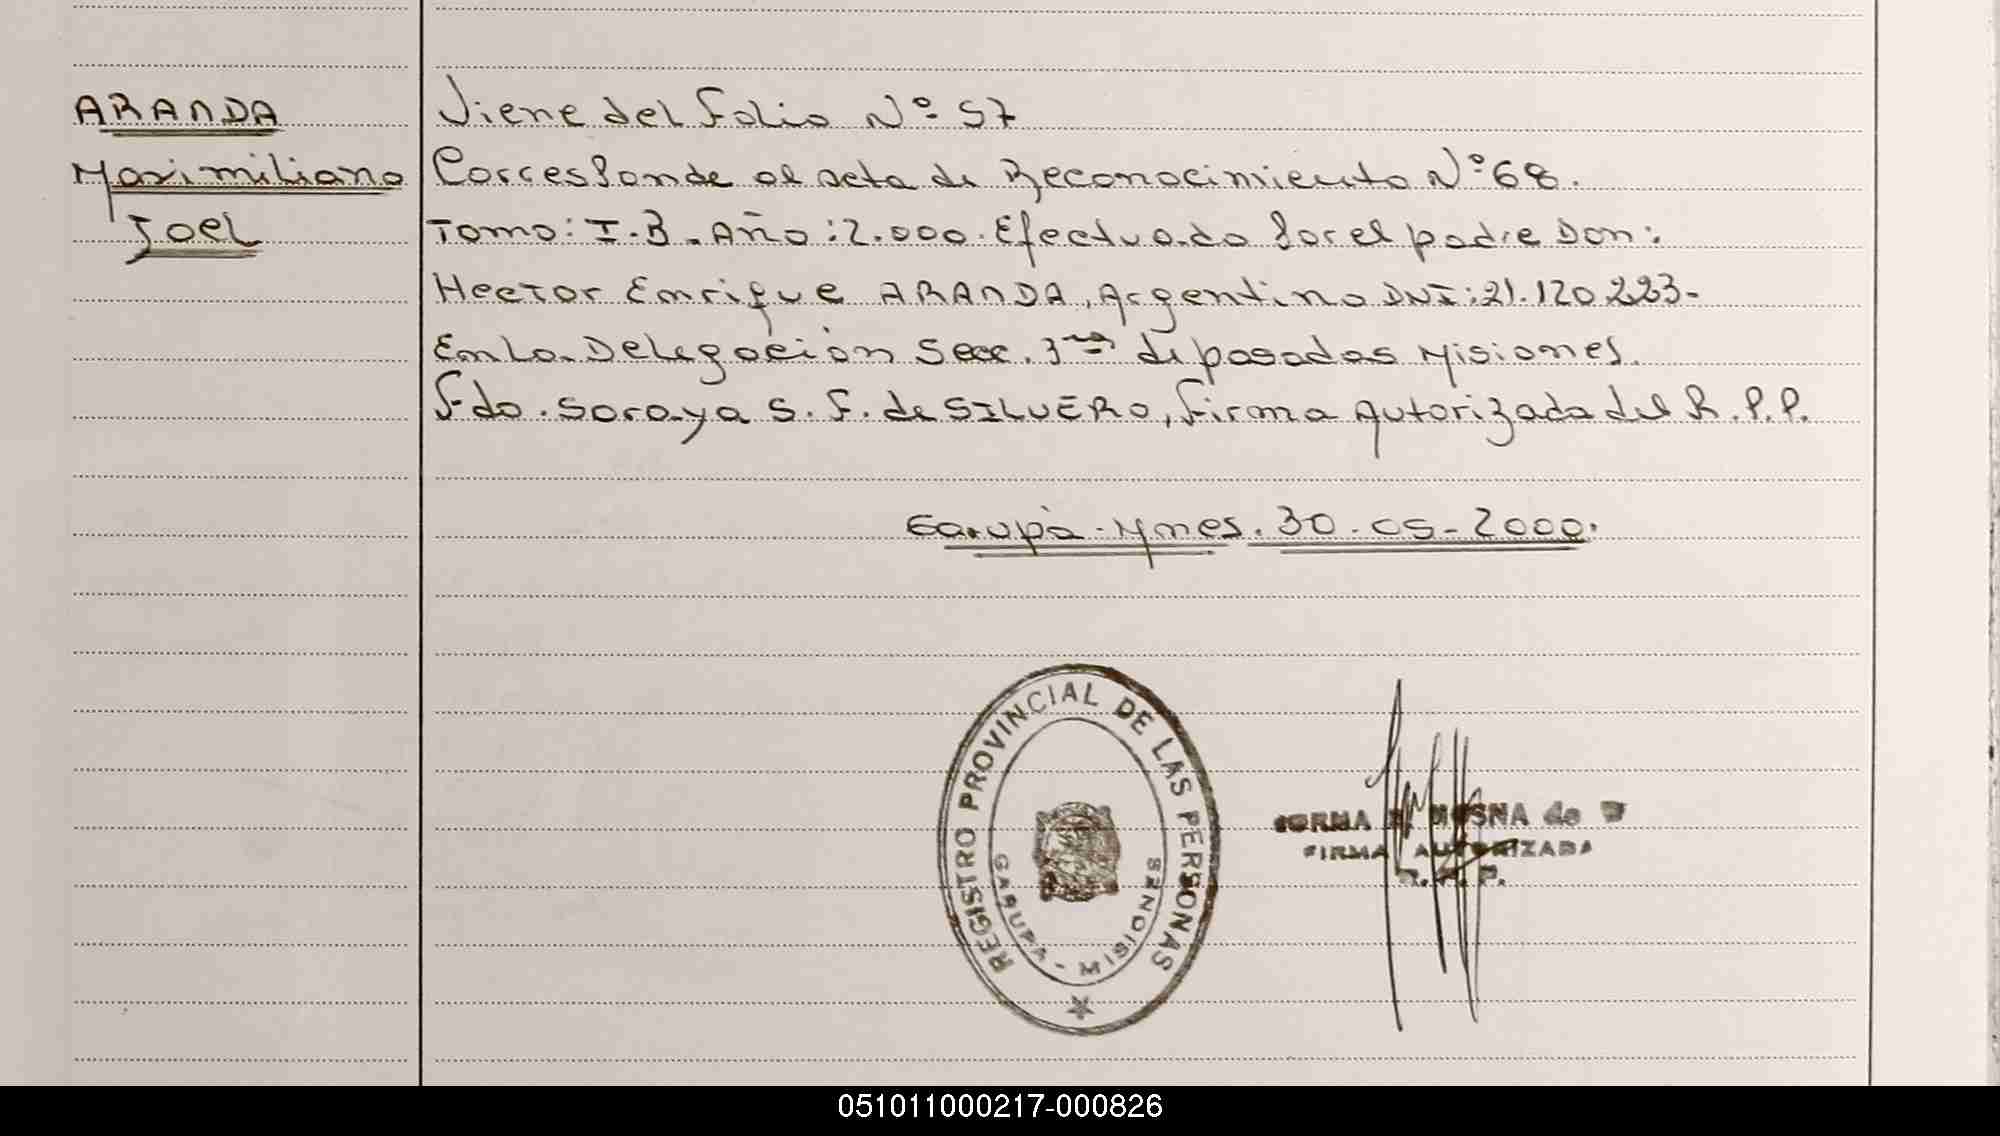 ARANDA
Maximiliano
Joel
Viene del Folio Nº 57
Corresponde al acta de Reconocimiento Nº 68.
Tomo: I.B. Año: 2.000. Efectuado por el padre Don:
Hector Enrique ARANDA, Argentino DNI: 21.170.223-
En la Delegación Secc. 3ra de posadas Misiones.
Fdo. Soraya S. F. de SILVERO, Firma Autorizada del R.P.P.
Garupà - Mnes. 30-05-2000.
REGISTRO PROVINCIAL DE LAS PERSONAS
GARUPA - MISIONES
NORMA MOSNA de
FIRMA AUTORIZADA
051011000217-000826